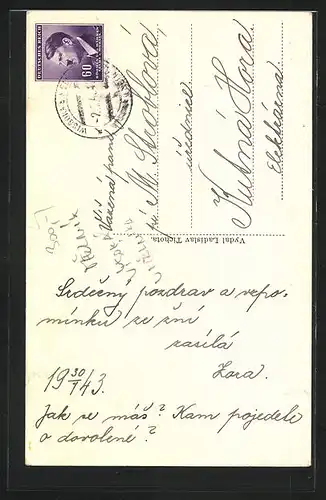 DEUTSCHES REICH
60
Vážená paní
M. Strotlová,
úřednice
Kutná Hora
Elektrárna
Vydal Ladislav Tichota.
Srdečný pozdrav a vzpo-
mínku ze žní
zasílá
Zora.
19 30/7 43.
Jak se máš? Kam pojedete
o dovolené?